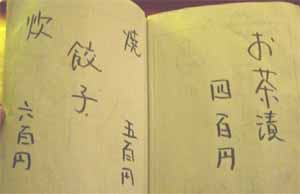 お茶漬
四百円
焼
五百円
餃子
炊
六百円